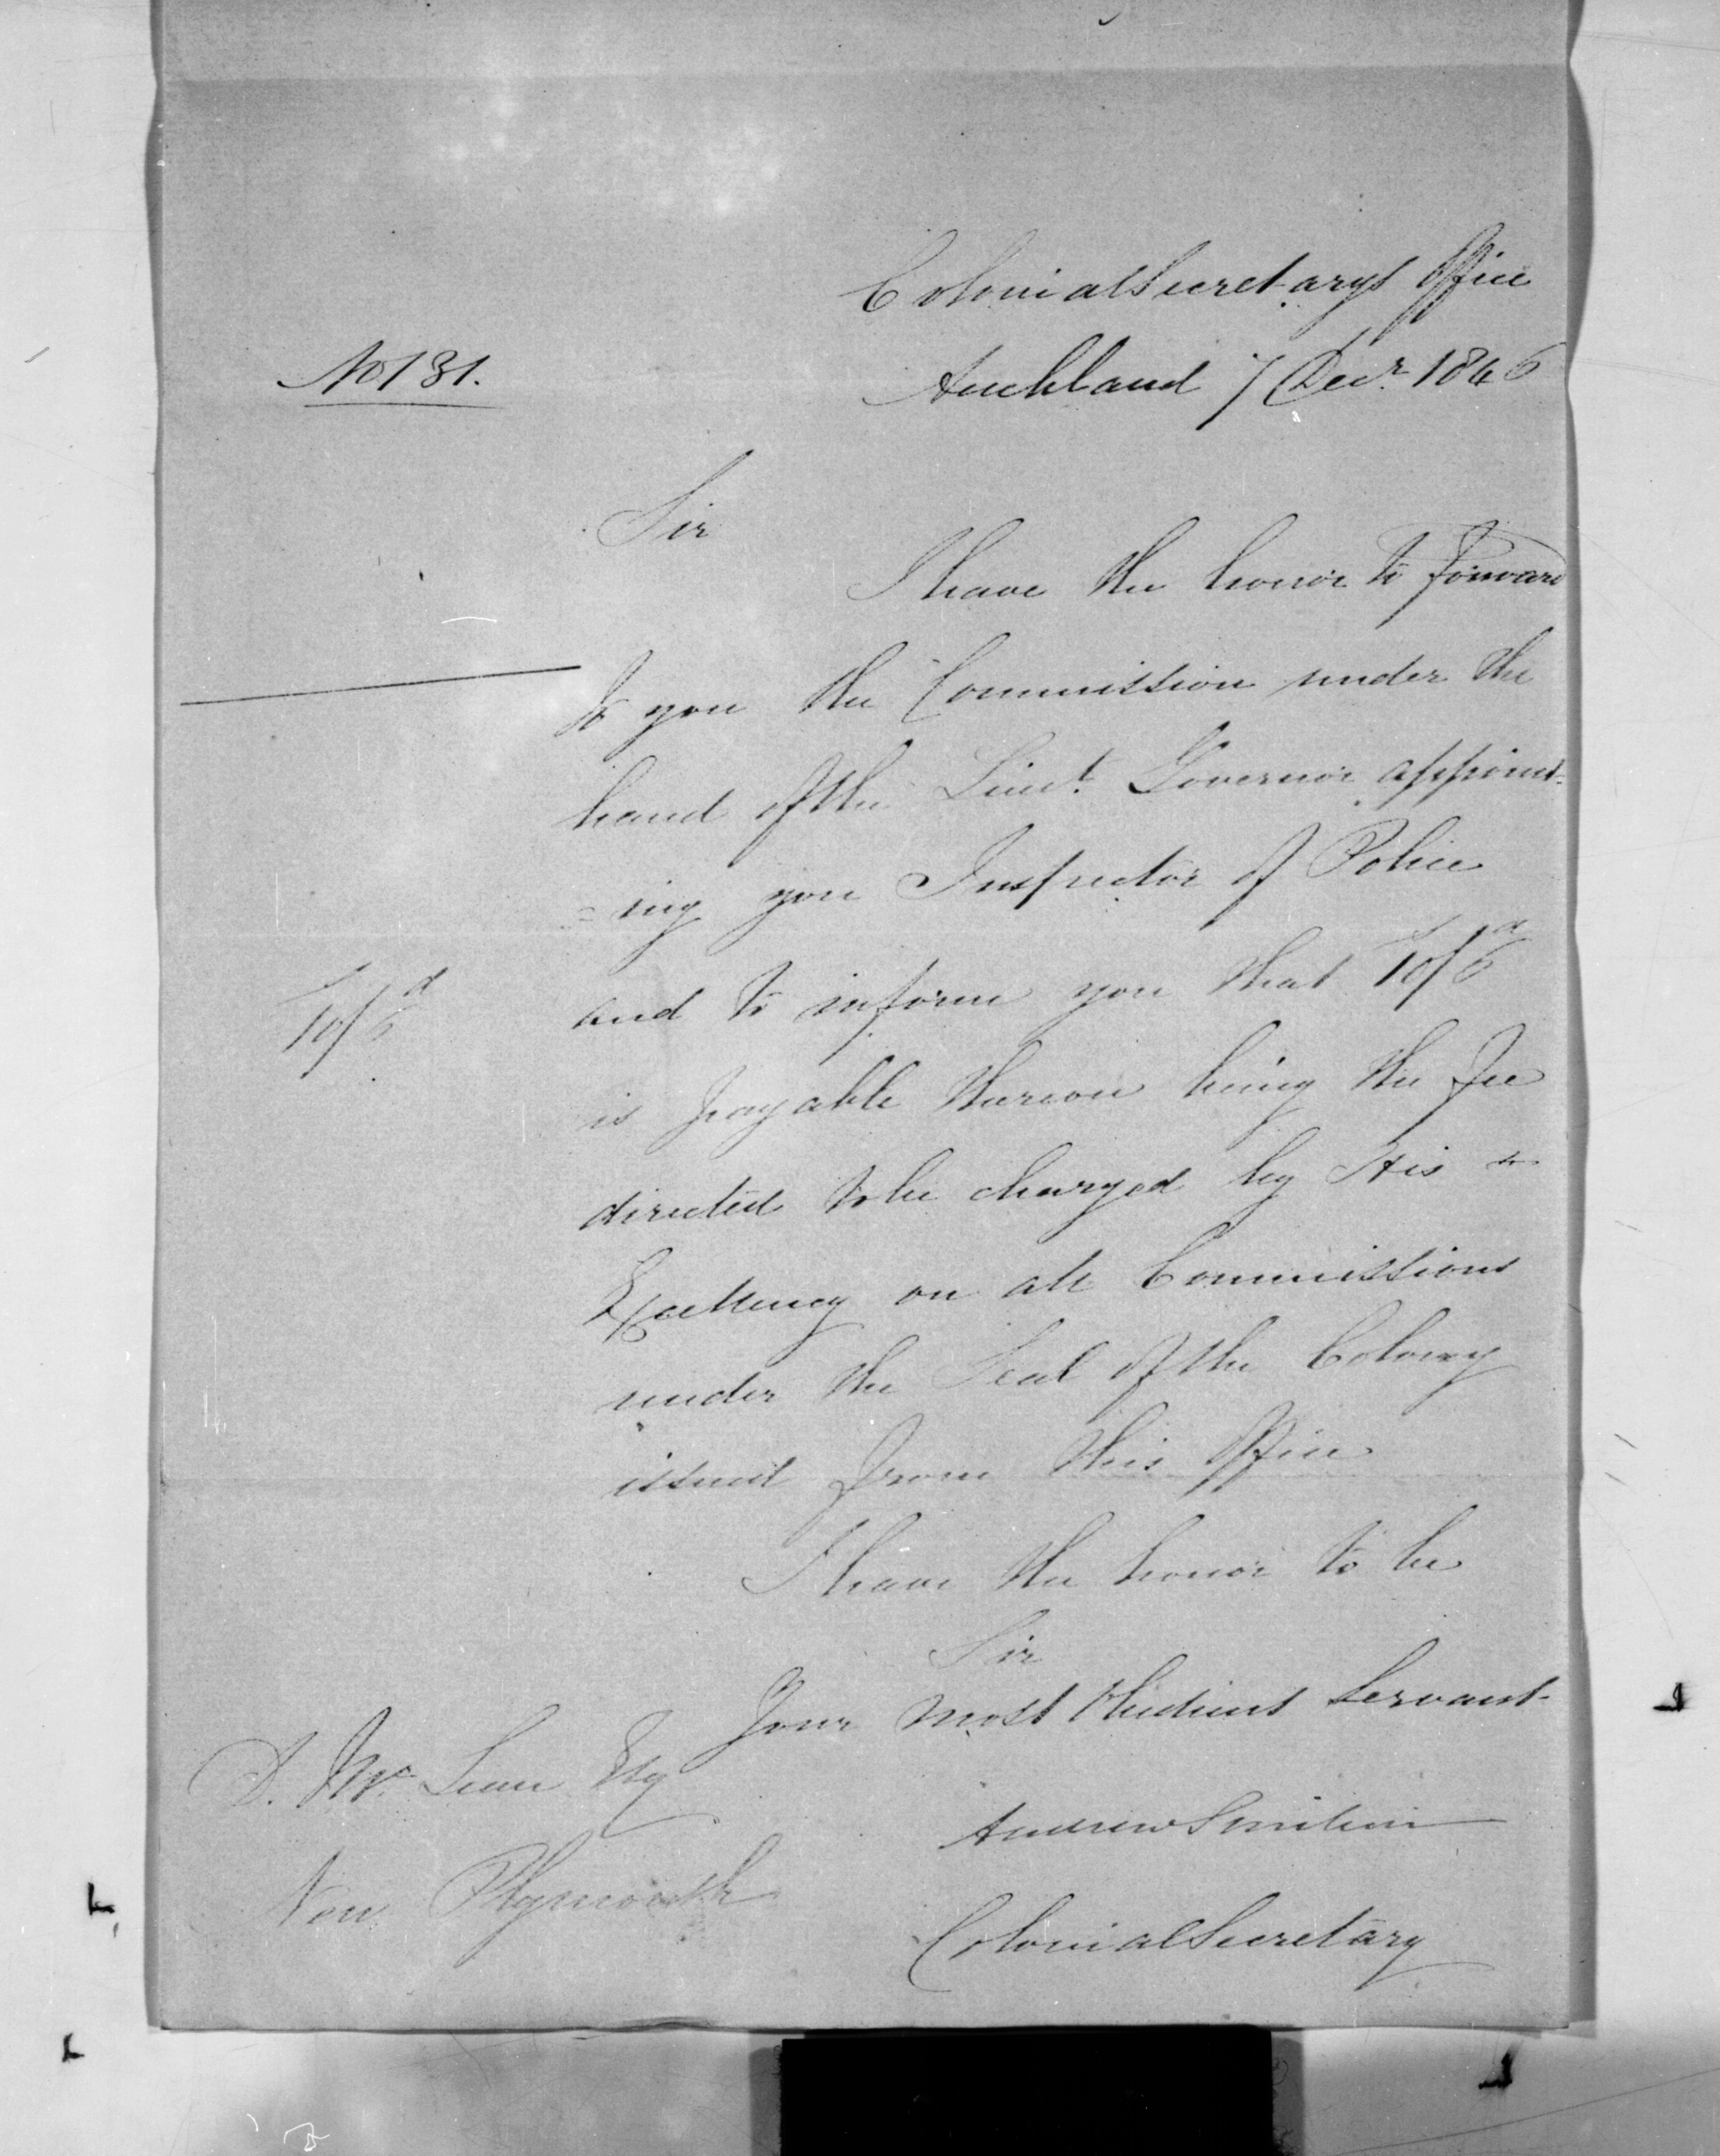 Colonial Secretarys Office
No 131.
Auckland 7 Decr. 1846
Sir
I have the honor to forward
to you the Commission under the
hand of the Lieut. Governor appoint-
=ing you Inspector of Police
and to inform you that 10s/6d
10s/6d
is payable thereon being the Fee
directed to be charged by His
Excellency on all Commissions
under the Seal of the Colony
issued from this Office
I have the honor to be
Sir
Your most Obedient Servant
D. McLean Esq
Andrew Sinclair
New Plymouth
Colonial Secretary